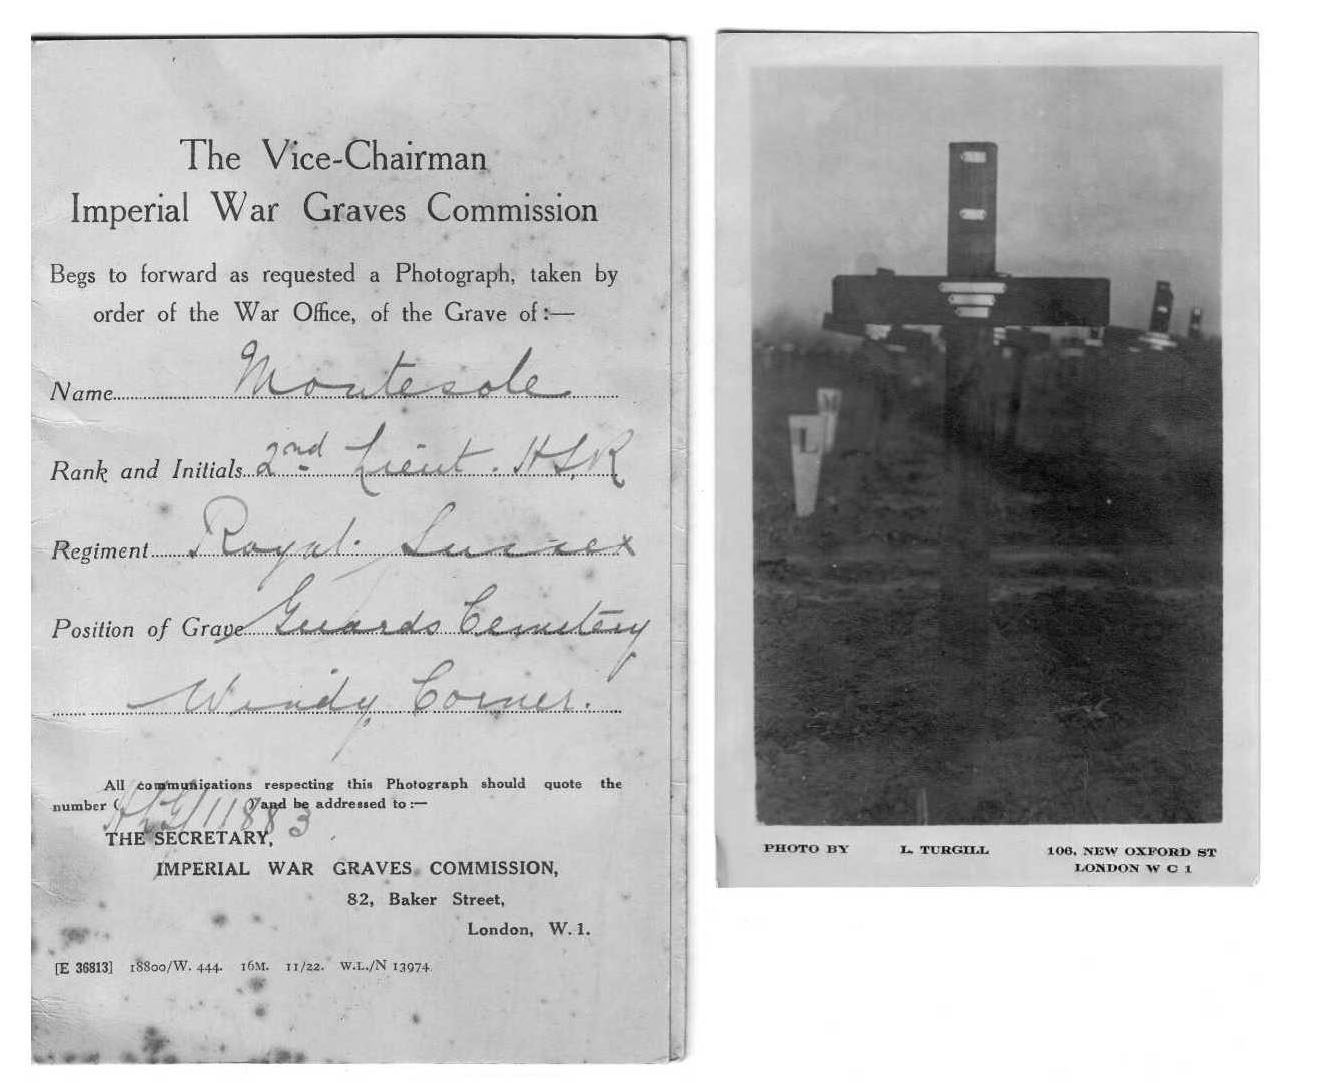 The Vice-Chairman
Imperial War Graves Commission
Begs to forward as requested a Photograph, taken by
order of the War Office, of the Grave of:—
Name Montesole
Rank and Initials 2nd Lieut. H.S.R
Regiment Royal Sussex
Position of Grave Guards Cemetery
Windy Corner.
All communications respecting this Photograph should quote the
number ( 11883 ) and be addressed to :—
THE SECRETARY,
IMPERIAL WAR GRAVES COMMISSION,
82, Baker Street,
London, W.1.
[E 36813] 18800/W. 444. 16M. 11/22. W.L./N 13974.
L
PHOTO BY L. TURGILL 106, NEW OXFORD ST
LONDON W C 1